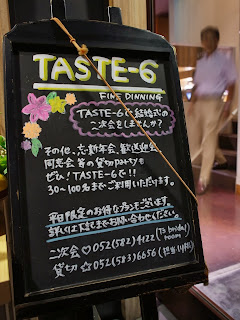 TASTE-6
FINE DINNING
TASTE-6で結婚式の
二次会をしませんか？
その他、忘・新年会、歓送迎会、
同窓会 等の貸切partyも
ぜひ！TASTE-6で！！
30〜100名までご利用いただけます。
平日限定のお得なプランもございます。
詳しくは下記までお問い合わせください。
二次会♡052(582)4122 (T's bridal room)
貸切☆052(583)6656 (担当: